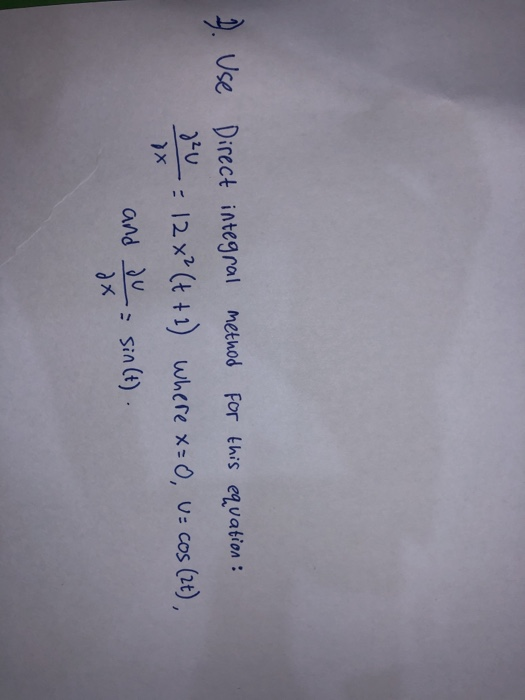 1). Use Direct integral method for this equation:
∂²U/∂x = 12x²(t+1) where x=0, U=cos(2t),
and ∂U/∂x = sin(t).